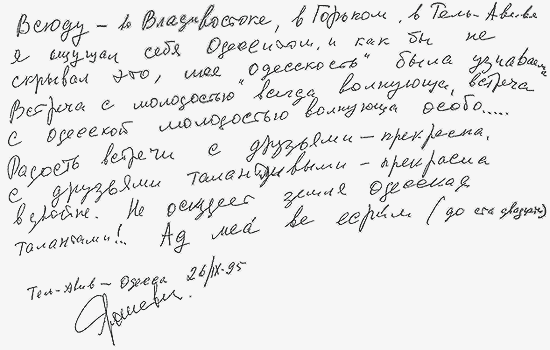 Всюду – во Владивостоке, в Горьком, в Тель-Авиве
я ощущал себя Одесситом, и как бы не
скрывал это, моя "одесскость" была узнаваема
Встреча с молодостью всегда волнующа, встреча
с одесской молодостью волнующа особо.....
Радость встречи с друзьями – прекрасна,
с друзьями талантливыми – прекрасна
вдвойне. Не оскудеет земля одесская
талантами!! Ад меа ве есрим (до ста двадцати)
Тель-Авив – Одесса 26/IX-95